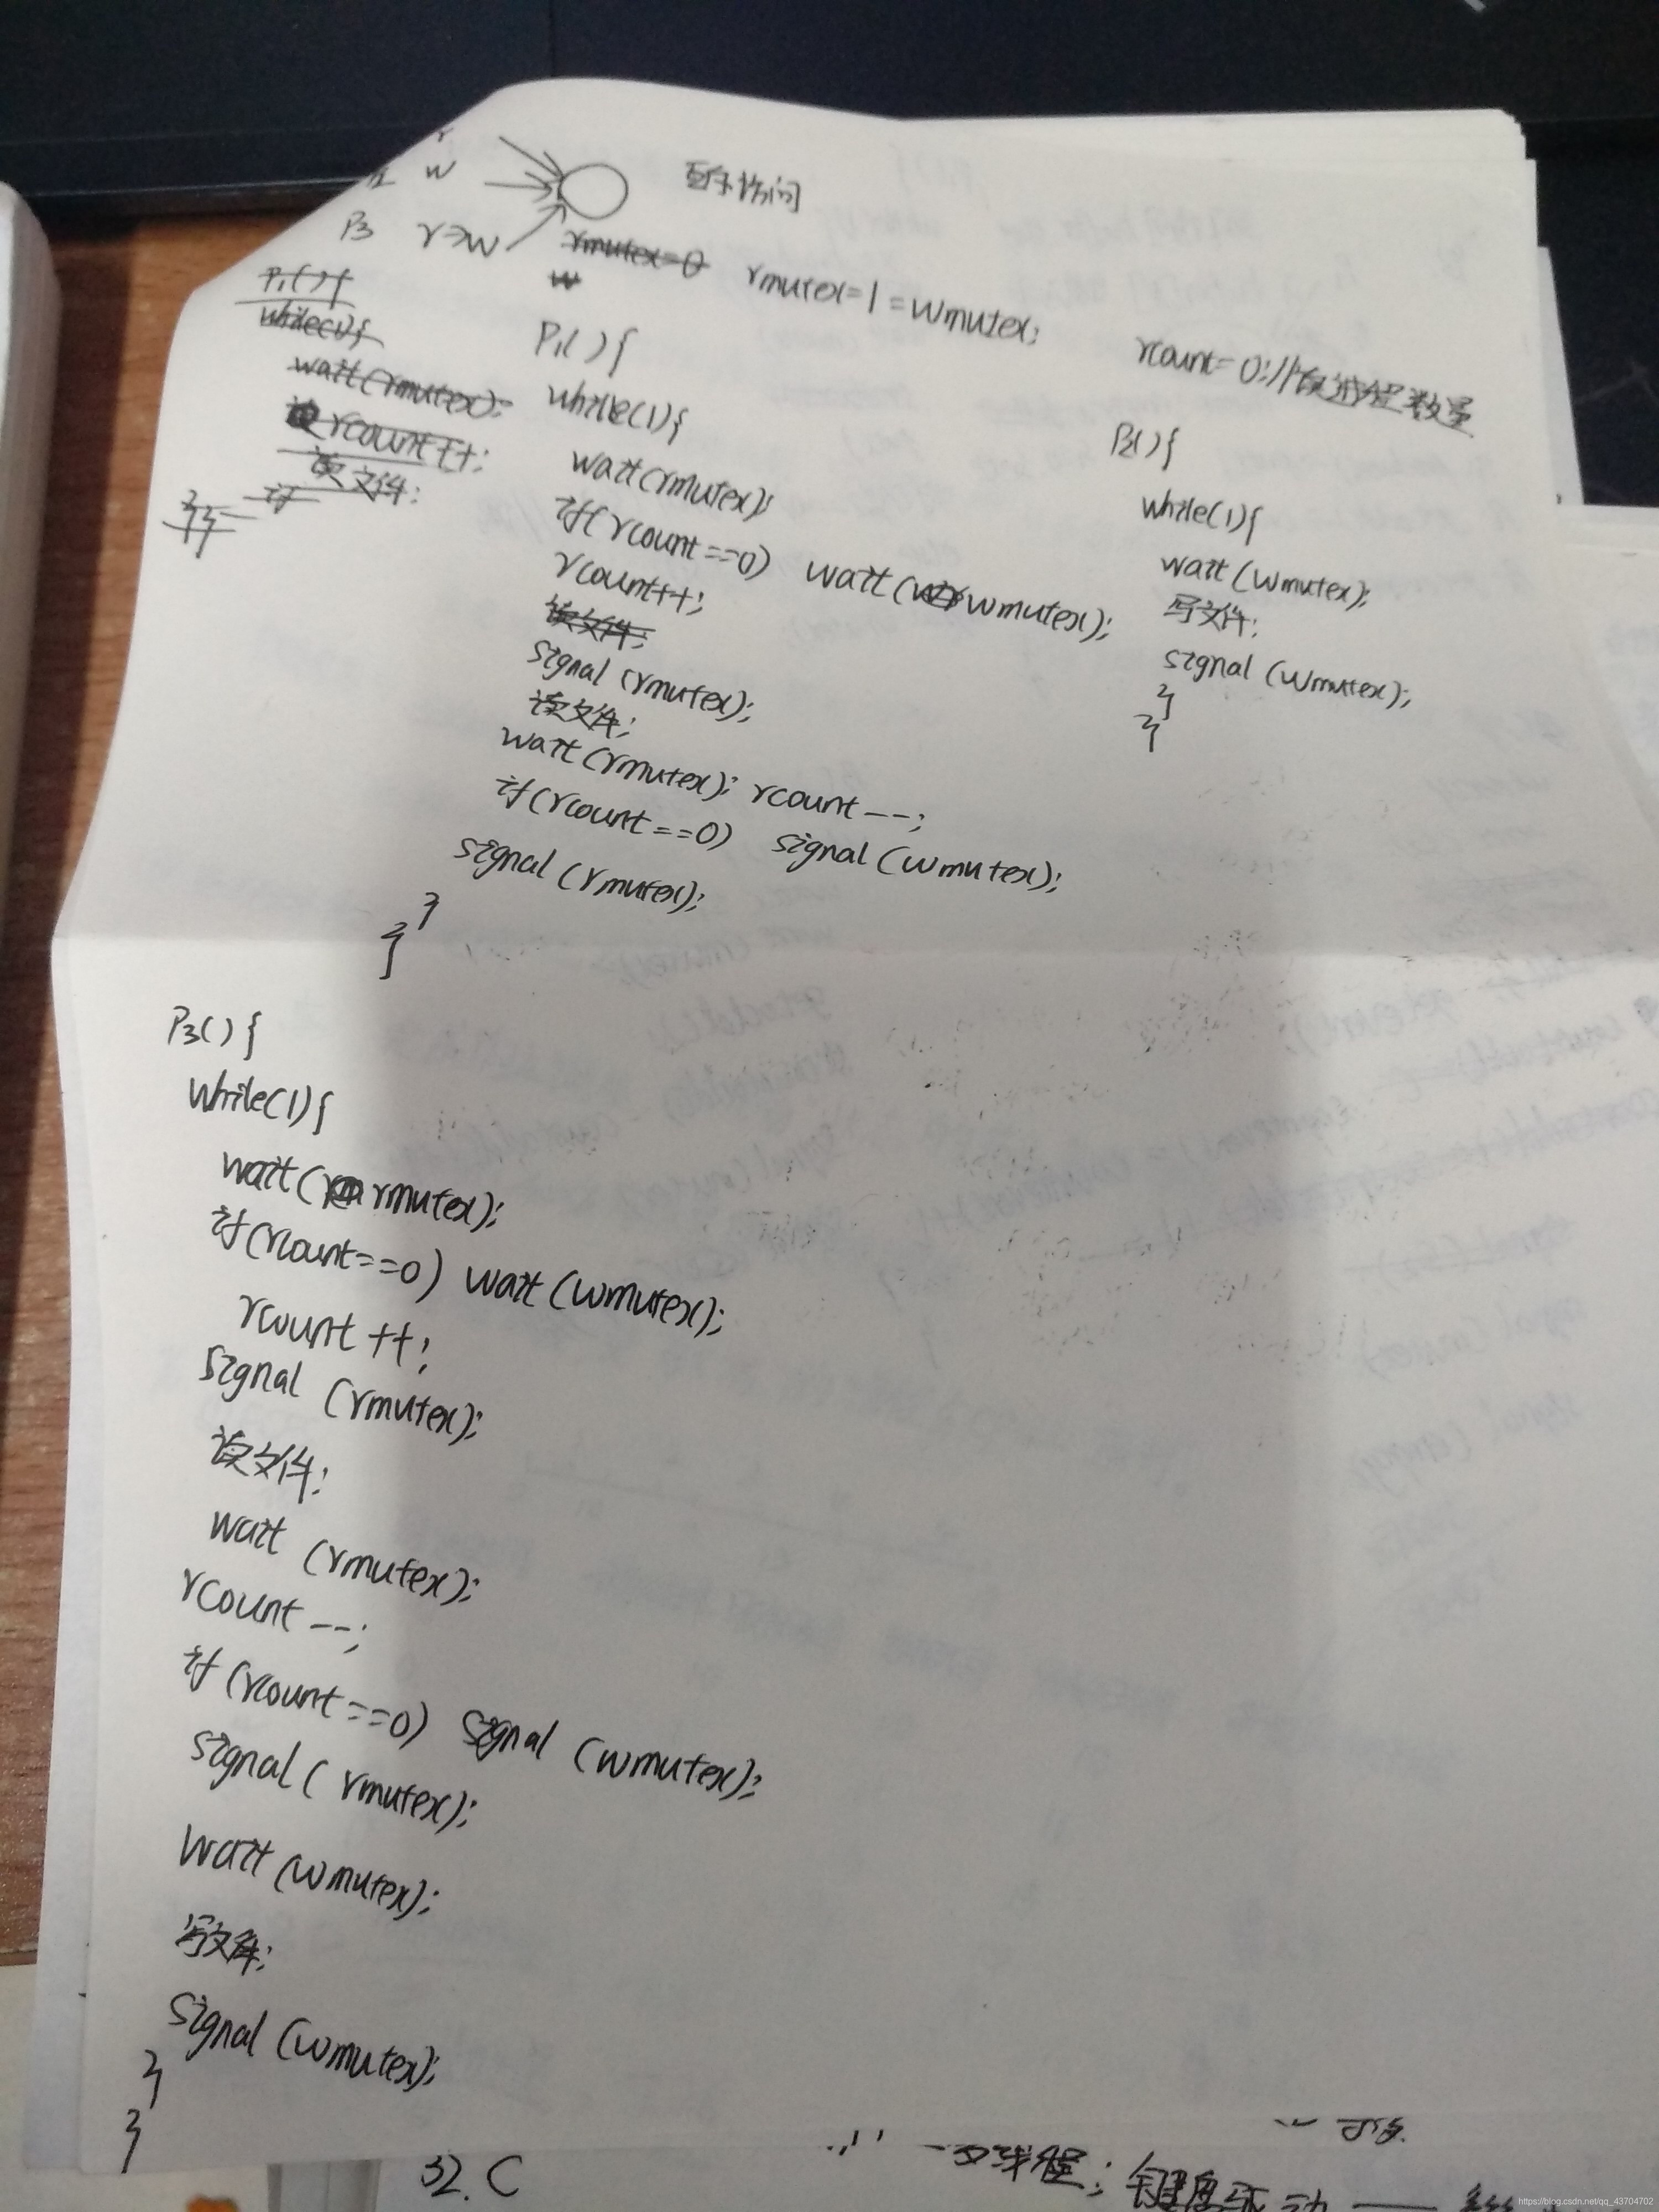 r
P2 w
P3 r→w
互斥访问
rmutex=0
w
rmutex=1=wmutex;
rcount=0;//读进程数量
P1(){
while(1){
wait(rmutex);
rcount++;
读文件;
if
}}
P1(){
while(1){
wait(rmutex);
if(rcount==0) wait(wmutex);
rcount++;
读文件;
signal(rmutex);
读文件;
wait(rmutex); rcount--;
if(rcount==0) signal(wmutex);
signal(rmutex);
}
}
P2(){
while(1){
wait(wmutex);
写文件;
signal(wmutex);
}
}
P3(){
while(1){
wait(rmutex);
if(rcount==0) wait(wmutex);
rcount++;
signal(rmutex);
读文件;
wait(rmutex);
rcount--;
if(rcount==0) signal(wmutex);
signal(rmutex);
wait(wmutex);
写文件;
signal(wmutex);
}
}
32. C
线程;键盘驱动——
https://blog.csdn.net/qq_43704702